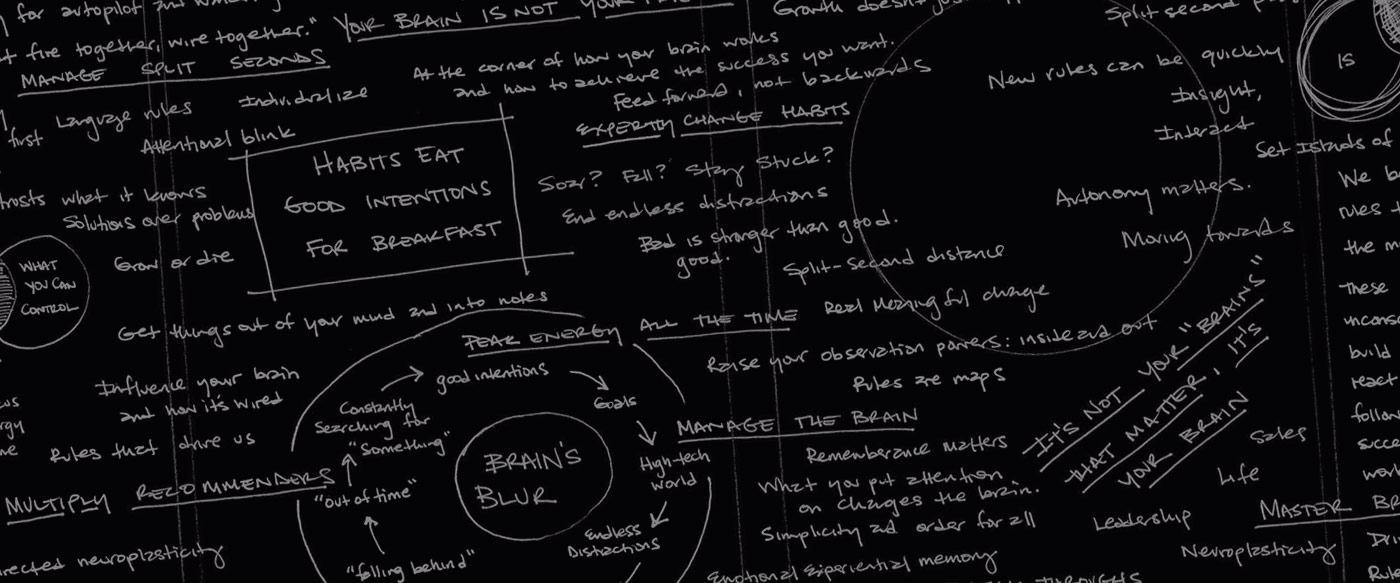 for autopilot and
fire together, wire together."
MANAGE SPLIT SECONDS
first Language rules
Individualize
Attentional blink
what it knows
Solutions over problems
Grow or die
WHAT
YOU CAN
CONTROL
HABITS EAT
GOOD INTENTIONS
FOR BREAKFAST
Get things out of your mind and into notes
Influence your brain
and how it's wired
Rules that drive us
MULTIPLY RECOMMENDERS
neuroplasticity
YOUR BRAIN IS NOT YOUR
At the corner of how your brain works
and how to achieve the success you want.
Feed forward, not backwards
EXPERTLY CHANGE HABITS
Soar? Fall? Stay Stuck?
End endless distractions
Bad is stronger than good.
good.
Split-second distance
Real Meaningful change
PEAK ENERGY ALL THE TIME
good intentions
Goals
High-tech
world
Endless
Distractions
"falling behind"
"out of time"
Constantly
Searching for
"Something"
BRAIN'S
BLUR
Raise your observation powers: inside and out
Rules are maps
MANAGE THE BRAIN
Rememberance matters
What you put attention
on changes the brain.
Simplicity and order for all
Emotional Experiential memory
Growth doesn't
Split second
New rules can be quickly
Insight,
Interact
Autonomy matters.
Moving towards
IS
Set Islands of
"IT'S NOT YOUR "BRAINS"
THAT MATTER, IT'S
YOUR BRAIN
Sales
Life
Leadership
MASTER
Neuroplasticity
We
rules
the
These
build
react